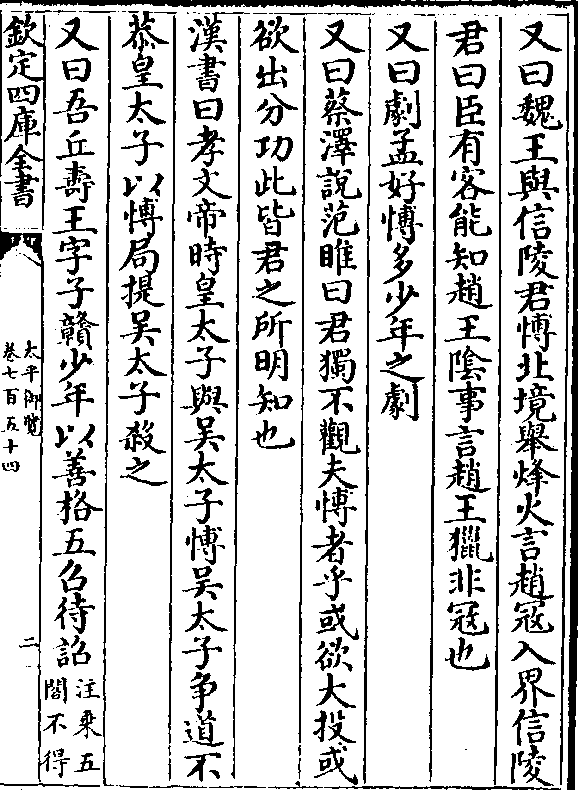 又曰魏王與信陵君愽北境舉烽火言趙冦入界信陵
君曰臣有客能知趙王隂事言趙王獵非冦也
又曰劇孟好愽多少年之劇
又曰蔡澤說范睢曰君獨不觀夫愽者乎或欲大投或
欲出分功此皆君之所明知也
漢書曰孝文帝時皇太子與吴太子愽吴太子争道不
恭皇太子以愽局提吴太子殺之
又曰吾丘壽王字子贛少年以善格五召待詔
注乗五
閣不得
欽定四庫全書
太平御覽
卷七百五十四
二